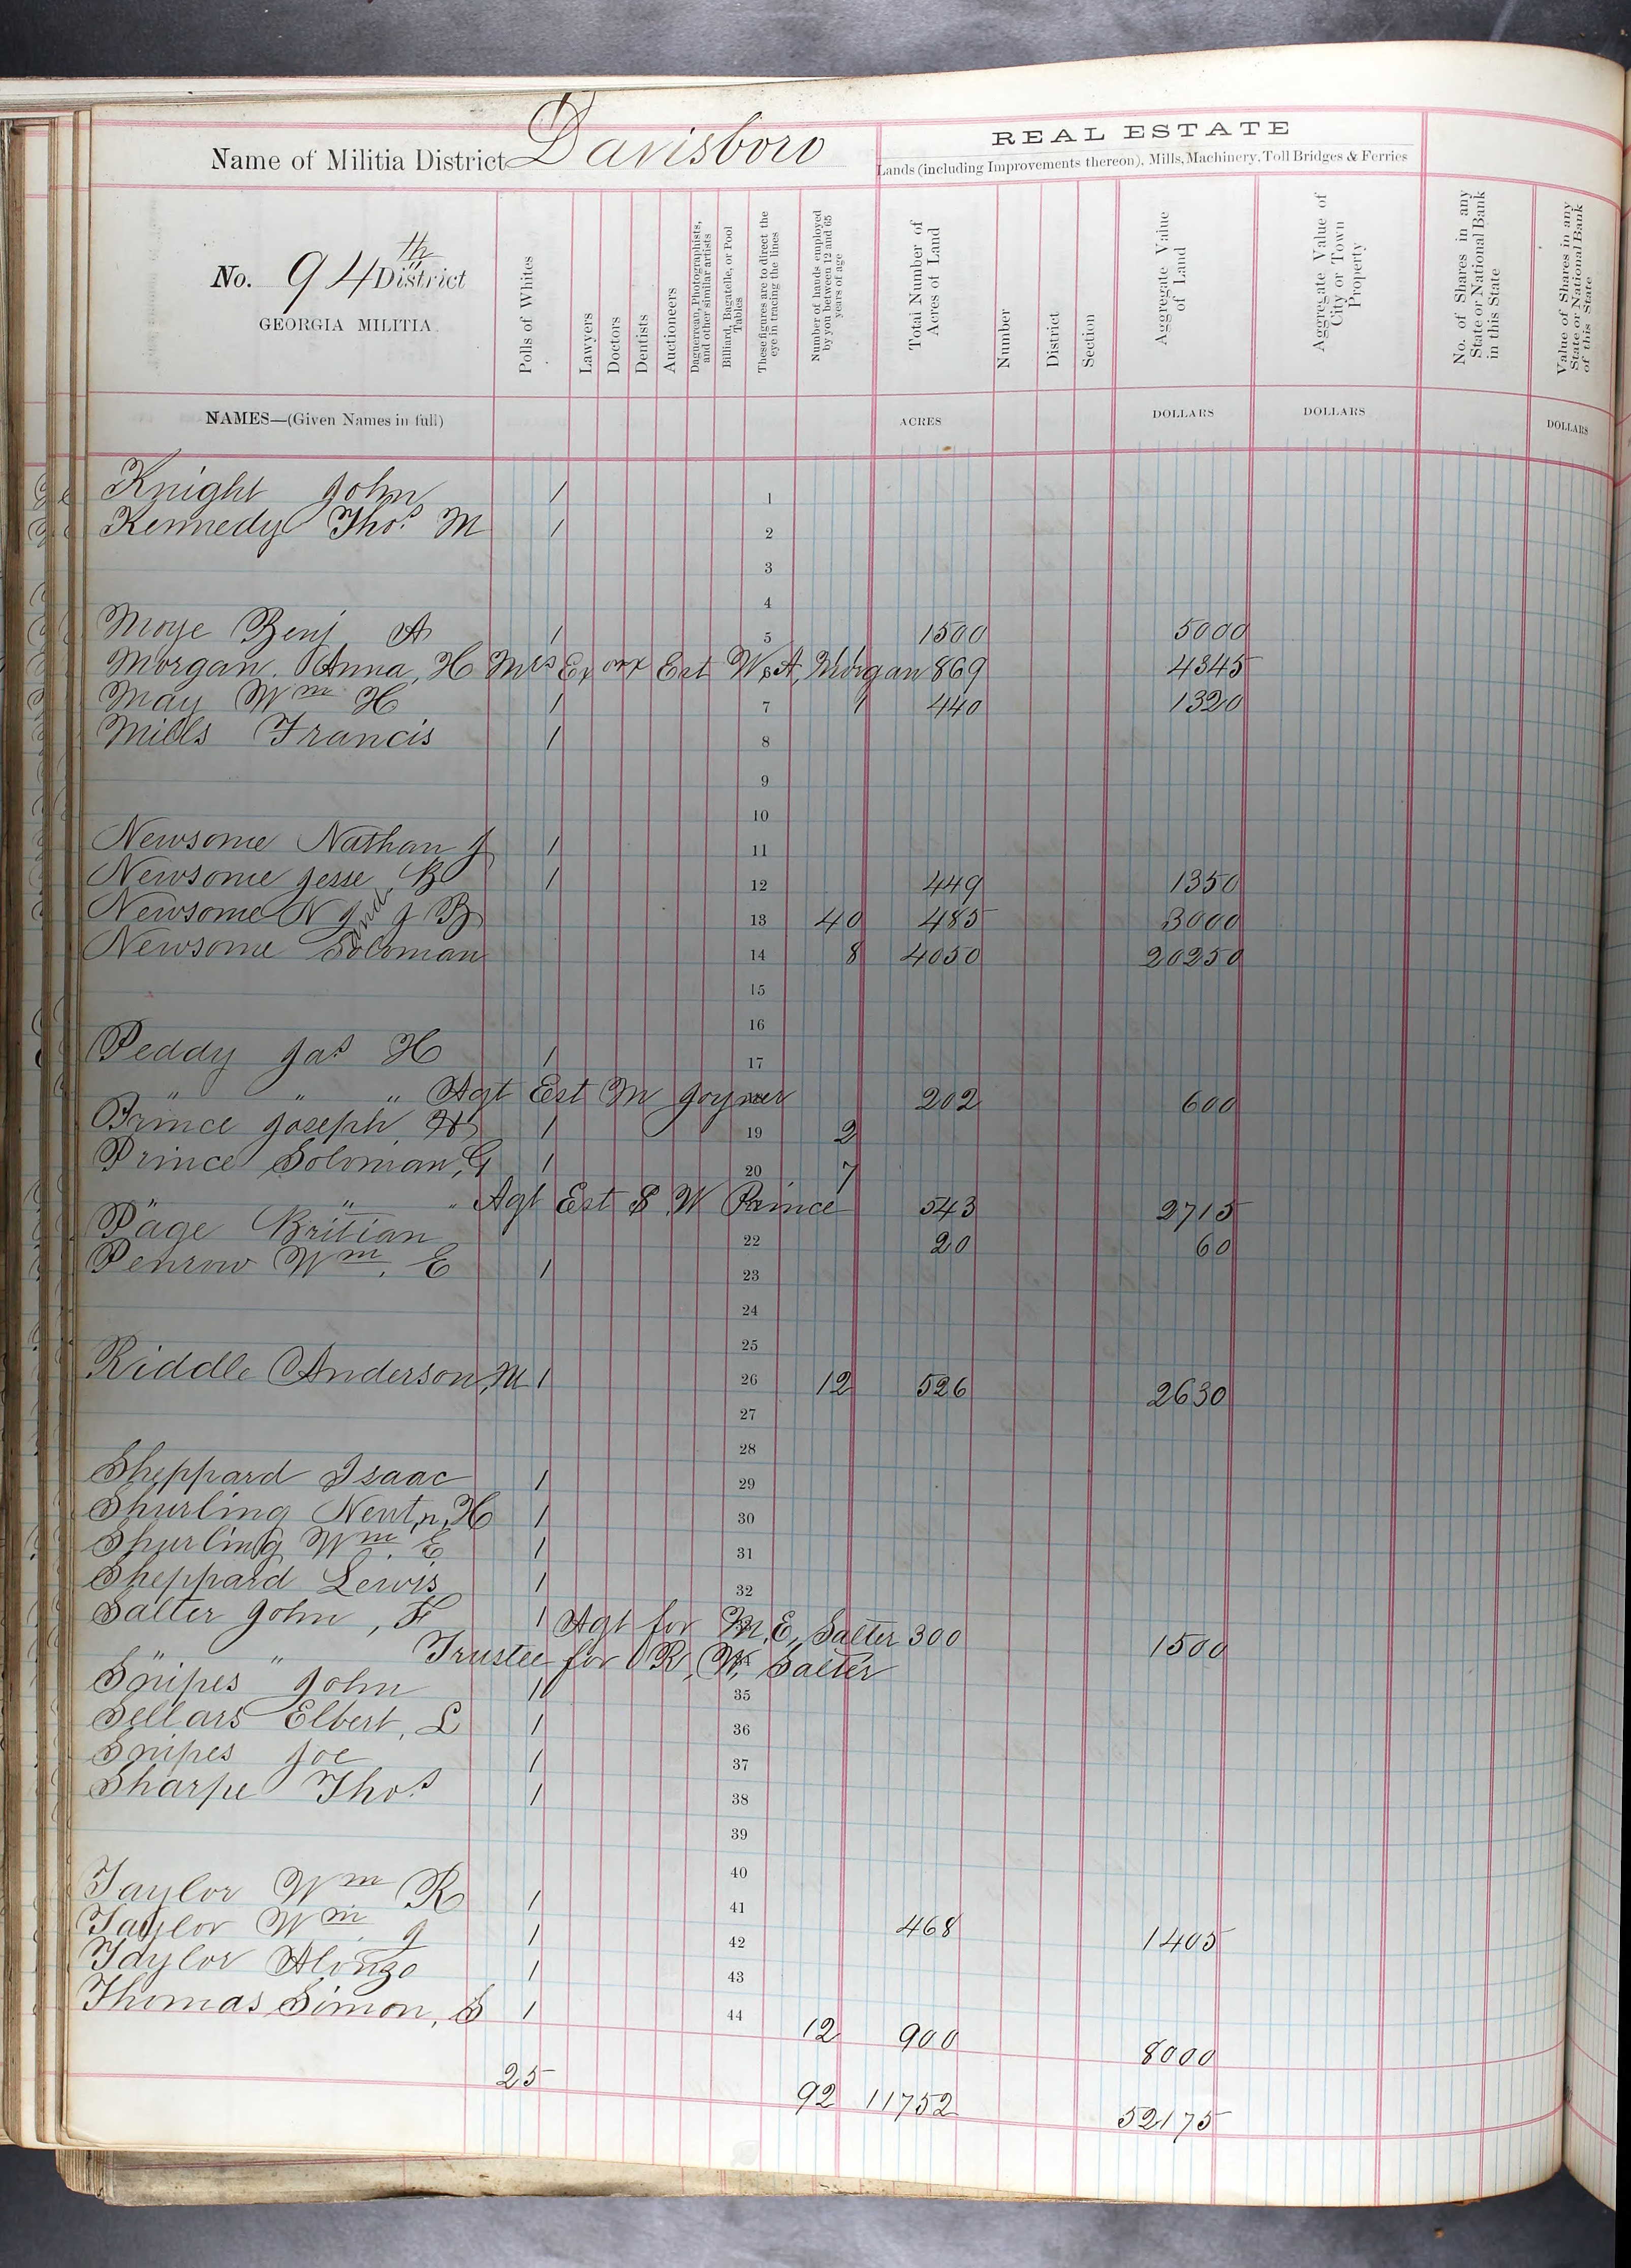 Name of Militia District Davisboro
REAL ESTATE
Lands (including Improvements thereon), Mills, Machinery, Toll Bridges & Ferries
No. 94th District
GEORGIA MILITIA
Polls of Whites
Lawyers
Doctors
Dentists
Auctioneers
Daguerrean, Photographists, and other similar artists
Billiard, Bagatelle, or Pool Tables
These figures are to direct the eye in tracing the lines
Number of hands employed by you between 12 and 65 years of age
Total Number of Acres of Land
Number
District
Section
Aggregate Value of Land
Aggregate Value of City or Town Property
No. of Shares in any State or National Bank in this State
Value of Shares in any State or National Bank of this State
NAMES—(Given Names in full)
ACRES
DOLLARS
DOLLARS
DOLLARS
Knight John 1 1
Kennedy Thos. M 1 2
3
4
Moye Benj A 1 5 1500 5000
Morgan. Anna, H Mrs Ex orx Est W A, Morgan 869 4345
May Wm H 1 7 1 440 1320
Mills Francis 1 8
9
10
Newsome Nathan J 1 11
Newsome Jesse, B 1 12 449 1350
Newsome N J and J B 13 40 485 3000
Newsome Soloman 14 8 4050 20250
15
16
Peddy Jas H 1 17
" " " Agt Est M Joyner 202 600
Prince Joseph, H 1 19 2
Prince Soloman, G 1 20 7
" " " Agt Est S W Prince 543 2715
Page Britian 22 20 60
Penrow Wm. E 1 23
24
25
Riddle Anderson, M 1 26 12 526 2630
27
28
Sheppard Isaac 1 29
Shurling Newtn, H 1 30
Shurling Wm. E 1 31
Sheppard Lewis 1 32
Salter John, F 1 Agt for M, E, Salter 300 1500
" " Trustee for R, W, Salter
Snipes John 1 35
Sellars Elbert, L 1 36
Snipes Joe 1 37
Sharpe Thos. 1 38
39
40
Taylor Wm R 1 41
Taylor Wm. J 1 42 468 1405
Taylor Alonzo 1 43
Thomas Simon, S 1 44 12 900 8000
25 92 11752 52175